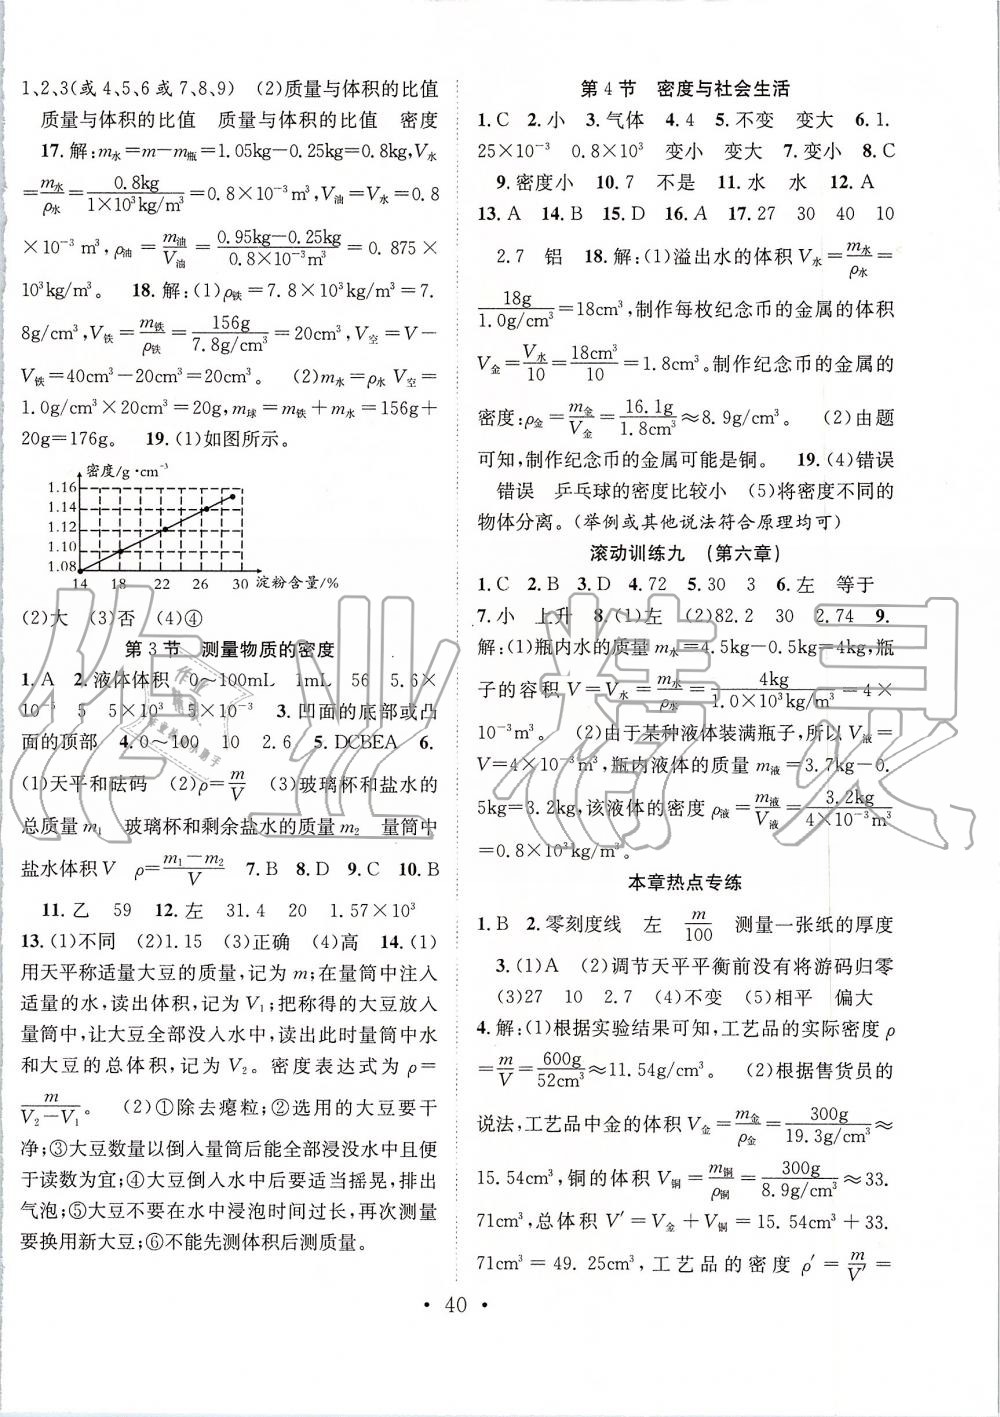 1、2、3(或4、5、6或7、8、9)　(2)质量与体积的比值
质量与体积的比值　质量与体积的比值　密度
17. 解:m水=m-m瓶=1.05kg-0.25kg=0.8kg,V水
=m水/ρ水=0.8kg/1×10³kg/m³=0.8×10⁻³m³,V油=V水=0.8
×10⁻³ m³,ρ油=m油/V油=0.95kg-0.25kg/0.8×10⁻³m³=0.875×
10³kg/m³。　18. 解:(1)ρ铁=7.8×10³kg/m³=7.
8g/cm³,V铁=m铁/ρ铁=156g/7.8g/cm³=20cm³,V空=V-
V铁=40cm³-20cm³=20cm³。　(2)m水=ρ水 V空=
1.0g/cm³×20cm³=20g,m球=m铁+m水=156g+
20g=176g。　19. (1)如图所示。
密度/g·cm⁻³
1.16
1.14
1.12
1.10
1.08
14　18　22　26　30　淀粉含量/%
(2)大　(3)否　(4)④
第3节　测量物质的密度
1. A　2. 液体体积　0~100mL　1mL　56　5.6×
10⁻⁵　5　5×10³　5×10⁻³　3. 凹面的底部或凸
面的顶部　4. 0~100　10　2.6　5. DCBEA　6.
(1)天平和砝码　(2)ρ=m/V　(3)玻璃杯和盐水的
总质量m₁　玻璃杯和剩余盐水的质量m₂　量筒中
盐水体积V　ρ=m₁-m₂/V　7. B　8. D　9. C　10. B
11. 乙　59　12. 左　31.4　20　1.57×10³
13. (1)不同　(2)1.15　(3)正确　(4)高　14. (1)
用天平称适量大豆的质量,记为m;在量筒中注入
适量的水,读出体积,记为V₁;把称得的大豆放入
量筒中,让大豆全部没入水中,读出此时量筒中水
和大豆的总体积,记为V₂。密度表达式为ρ=
m/V₂-V₁。　(2)①除去瘪粒;②选用的大豆要干
净;③大豆数量以倒入量筒后能全部浸没水中且便
于读数为宜;④大豆倒入水中后要适当摇晃,排出
气泡;⑤大豆不要在水中浸泡时间过长,再次测量
要换用新大豆;⑥不能先测体积后测质量。
第4节　密度与社会生活
1. C　2. 小　3. 气体　4. 4　5. 不变　变大　6. 1.
25×10⁻³　0.8×10³　变小　变大　7. 变小　8. C
9. 密度小　10. 7　不是　11. 水　水　12. A
13. A　14. B　15. D　16. A　17. 27　30　40　10
2.7　铝　18. 解:(1)溢出水的体积V水=m水/ρ水=
18g/1.0g/cm³=18cm³,制作每枚纪念币的金属的体积
V金=V水/10=18cm³/10=1.8cm³。制作纪念币的金属的
密度:ρ金=m金/V金=16.1g/1.8cm³≈8.9g/cm³。　(2)由题
可知,制作纪念币的金属可能是铜。　19. (4)错误
错误　乒乓球的密度比较小　(5)将密度不同的
物体分离。(举例或其他说法符合原理均可)
滚动训练九　(第六章)
1. C　2. B　3. D　4. 72　5. 30　3　6. 左　等于
7. 小　上升　8. (1)左　(2)82.2　30　2.74　9.
解:(1)瓶内水的质量m水=4.5kg-0.5kg=4kg,瓶
子的容积V=V水=m水/ρ水=4kg/1.0×10³kg/m³=4×
10⁻³m³。　(2)由于某种液体装满瓶子,所以V液=
V=4×10⁻³m³,瓶内液体的质量m液=3.7kg-0.
5kg=3.2kg,该液体的密度ρ液=m液/V液=3.2kg/4×10⁻³m³
=0.8×10³kg/m³。
本章热点专练
1. B　2. 零刻度线　左　m/100　测量一张纸的厚度
3. (1)A　(2)调节天平平衡前没有将游码归零
(3)27　10　2.7　(4)不变　(5)相平　偏大
4. 解:(1)根据实验结果可知,工艺品的实际密度ρ
=m/V=600g/52cm³≈11.54g/cm³。　(2)根据售货员的
说法,工艺品中金的体积V金=m金/ρ金=300g/19.3g/cm³≈
15.54cm³,铜的体积V铜=m铜/ρ铜=300g/8.9g/cm³≈33.
71cm³,总体积V′=V金+V铜=15.54cm³+33.
71cm³=49.25cm³,工艺品的密度ρ′=m/V′=
·40·
作业精灵